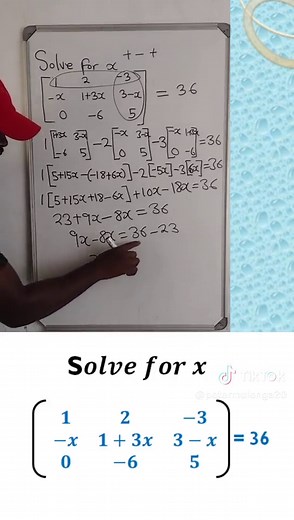 Solve for x + - +
1 2 -3
-x 1+3x 3-x = 36
0 -6 5
1[1+3x 3-x -6 5] -2[-x 3-x 0 5] -3[-x 1+3x 0 -6] =36
1[5+15x-(-18+6x)]-2[-5x]-3[6x]=36
1[5+15x+18-6x]+10x-18x=36
23+9x-8x=36
9x-8x=36-23
Solve for x
1 2 -3
-x 1 + 3x 3 - x = 36
0 -6 5
TikTok